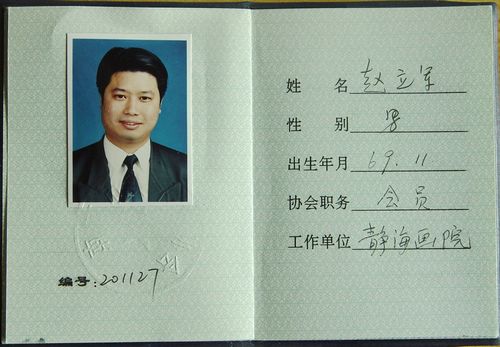 编号:201127
姓名 赵立军
性别 男
出生年月 69.11
协会职务 会员
工作单位 静海画院